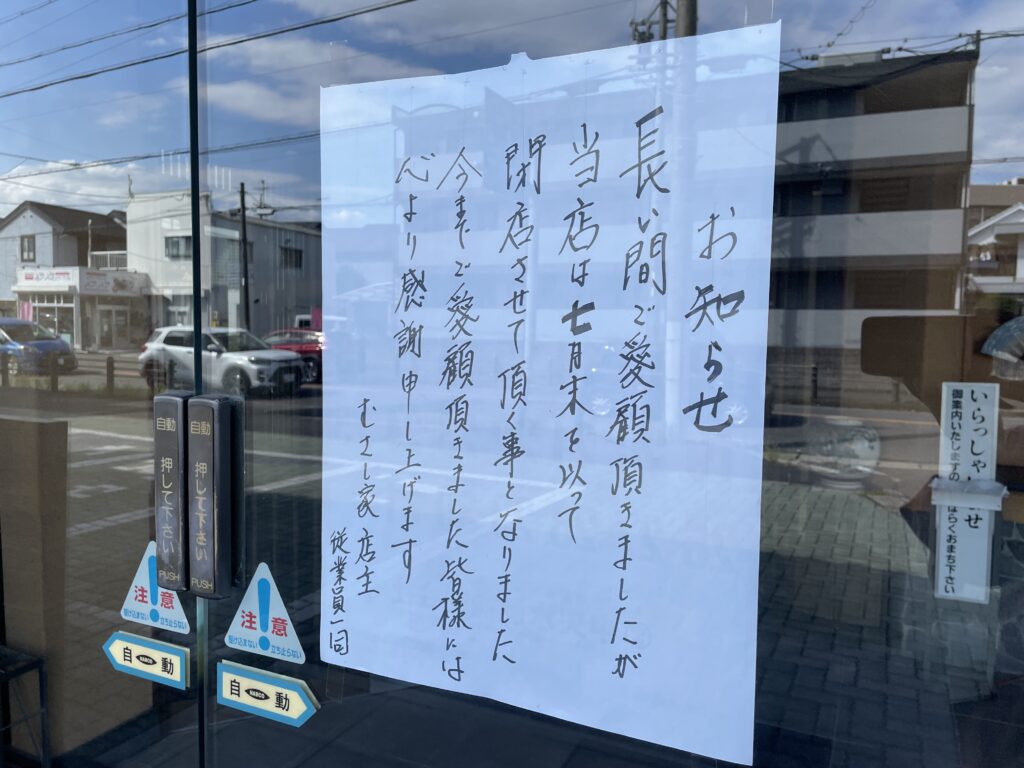 お知らせ
長い間ご愛顧頂きましたが
当店は七月末を以って
閉店させて頂く事となりました
今までご愛顧頂きました皆様には
心より感謝申し上げます
むさし家 店主
従業員一同
自動
押して下さい
PUSH
自動
押して下さい
PUSH
注意
駆け込まない 立ち止らない
自動
NABCO
注意
駆け込まない 立ち止らない
自動
NABCO
いらっしゃ
せ
御案内いたしますの
ばらくおまち下さい